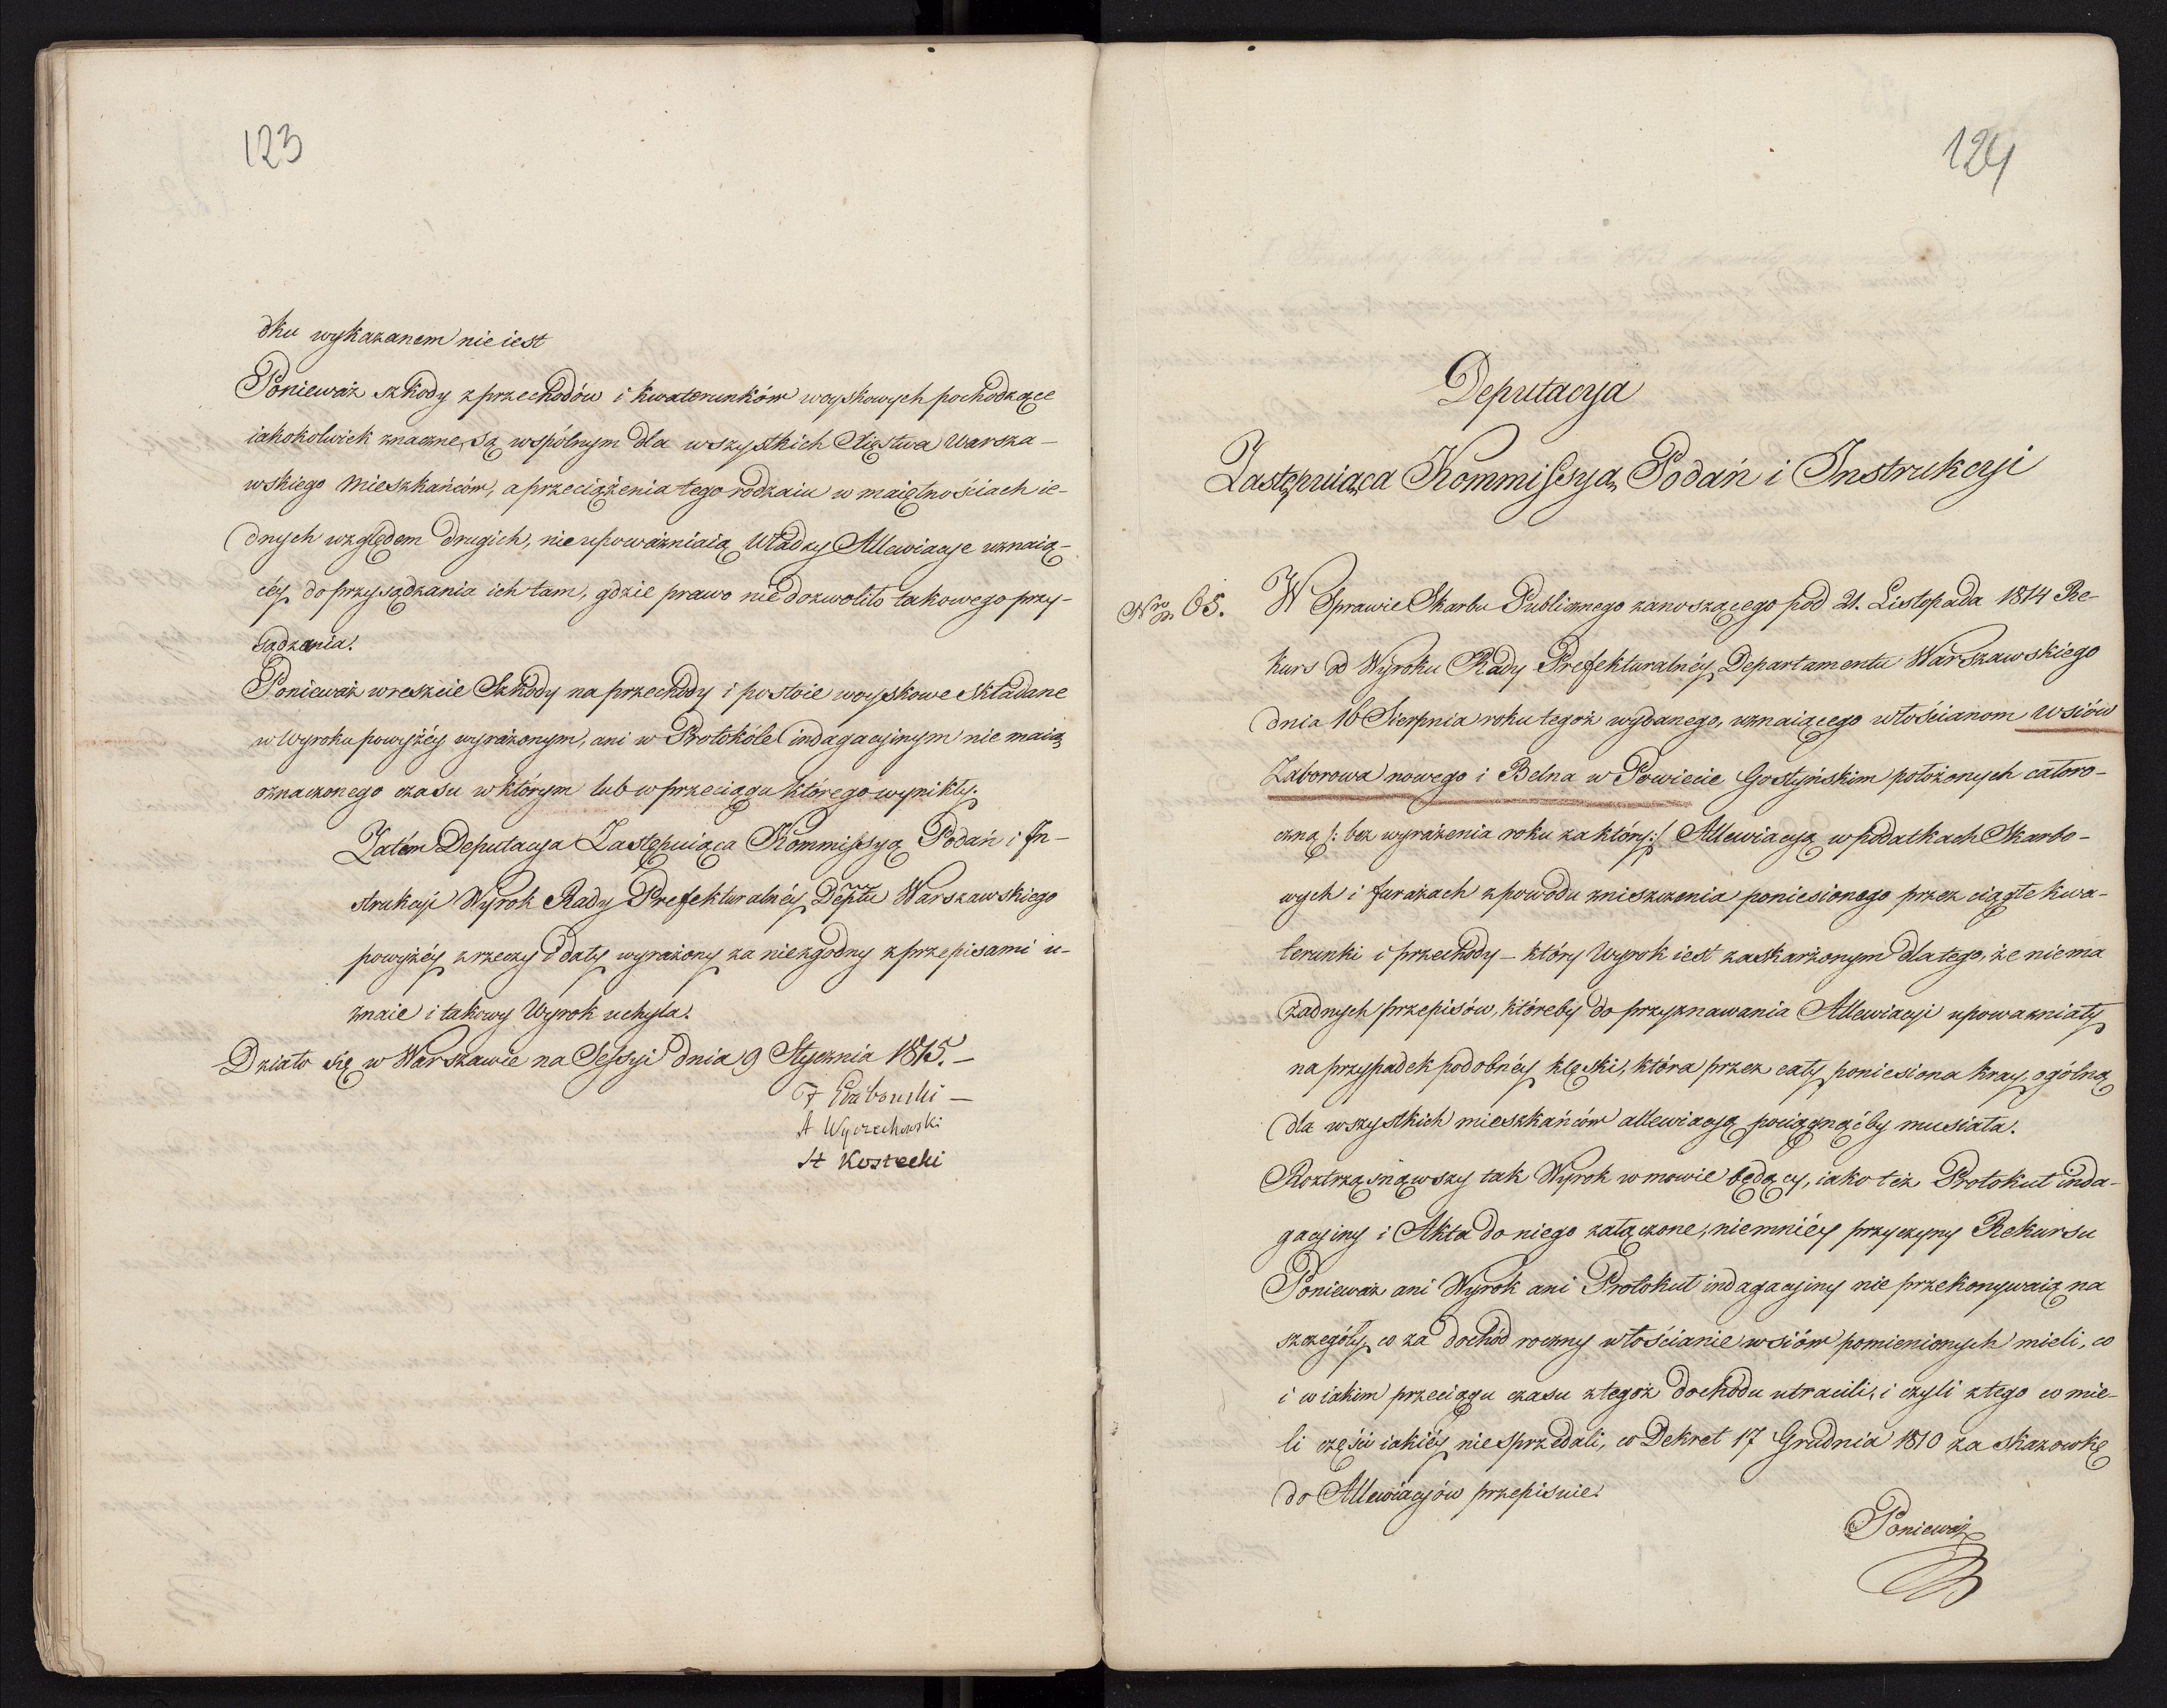 123
dku wykazanem nie iest
Ponieważ szkody z przechodów i kwaterunków woyskowych pochodzące
iakokolwiek znaczne, są wspólnym dla wszystkich Xięstwa Warsza-
wskiego Mieszkańców, a przeciążenia tego rodzaiu w maiętnościach ie-
dnych względem drugich, nie upoważniaią Władzy Allewiacye uznaią-
céy do przysądzania ich tam, gdzie prawo nie dozwoliło takowego przy-
sądzania.
Ponieważ wreszcie Szkody na przechody i postoie woyskowe składane
w Wyroku powyżéy wyrażonym, ani w Protokóle indagacyinym nie maią
oznaczonego czasu w którym lub w przeciągu którego wynikły.
Zatém Deputacya Zastępuiąca Kommissyą Podań i In-
strukcyi Wyrok Rady Prefekturalnéy Deptu Warszawskiego
powyżéy z rzeczy i daty wyrażony za niezgodny z przepisami u-
znaie i takowy Wyrok uchyla.
Działo się w Warszawie na Sessyi dnia 9 Stycznia 1815. –
F Grabowski –
A Wyczechowski
St Kostecki
124
Deputacya
Zastępuiąca Kommissyą Podań i Instrukcyi
Nro 65. W Sprawie Skarbu Publicznego zanoszącego pod 21. Listopada 1814 Re-
kurs od Wyroku Rady Prefekturalnéy Departamentu Warszawskiego
dnia 16 Sierpnia roku tegoż wydanego, uznaiącego włościanom wsiów
Zaborowa nowego i Belna w Powiecie Gostyńskim położonych cało ro-
czną /: bez wyrażenia roku za który :/ Allewiacyą w podatkach Skarbo-
wych i furażach z powodu zniszczenia poniesionego przez ciągłe kwa-
terunki i przechody – który Wyrok iest zaskarżonym dla tego, że niema
żadnych przepisów, któreby do przyznawania Allewiacyi upoważniały
na przypadek podobnéy klęski, która przez cały poniesiona kray, ogólną
dla wszystkich mieszkańców allewiacyą pociągnąćby musiała.
Roztrząsnąwszy tak Wyrok w mowie będący, iako też Protokuł inda-
gacyiny i Akta do niego załączone, niemniéy przyczyny Rekursu
Ponieważ ani Wyrok ani Protokuł indagacyiny nie przekonywaią na
szczegóły, co za dochód roczny włościanie wsiów pomienionych mieli, co
i w iakim przeciągu czasu z tegoż dochodu utracili, i czyli z tego co mie-
li części iakiéy nie sprzedali, co Dekret 17 Grudnia 1810 za skazówkę
do Allewiacyów przepisuie.
Ponieważ